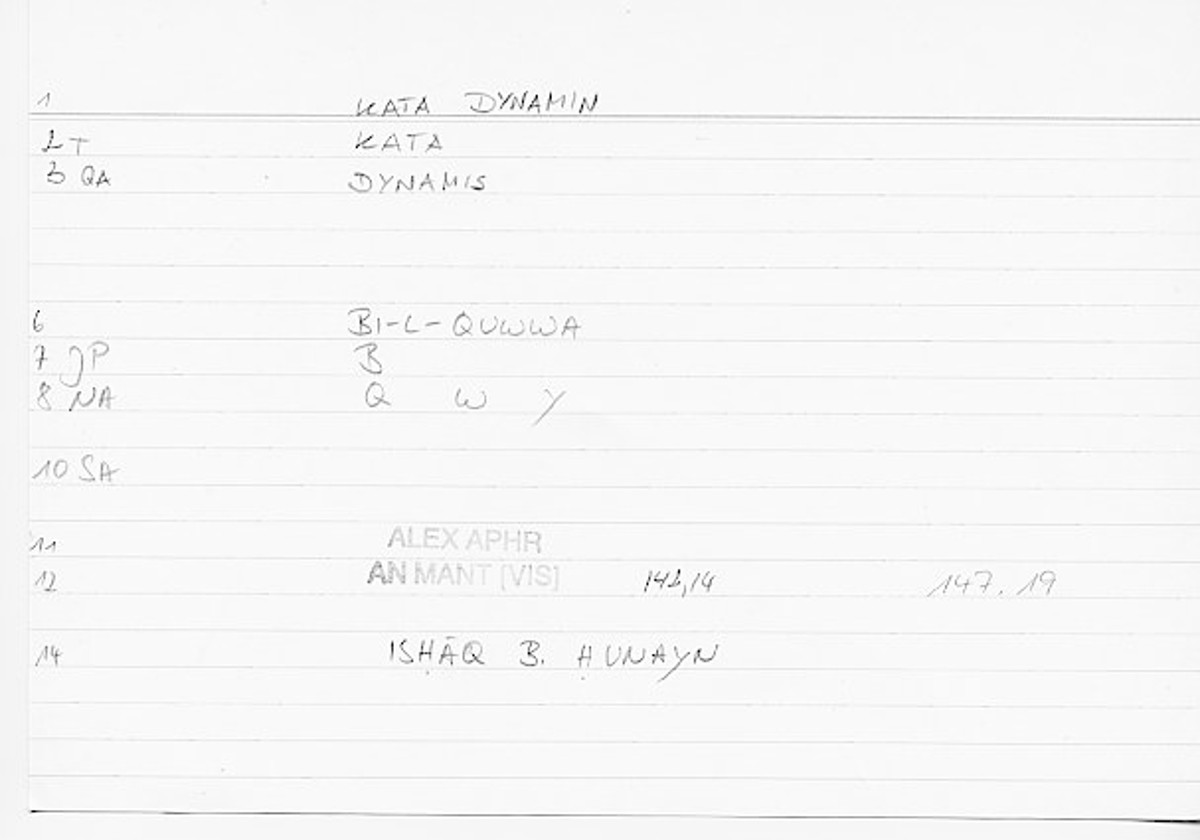 1 KATA DYNAMIN
2 T KATA
3 QA DYNAMIS
6 BI-L-QUWWA
7 JP B
8 NA Q W Y
10 SA
11 ALEX APHR
12 AN MANT [VIS] 142,14 147.19
14 ISḤĀQ B. ḤUNAYN